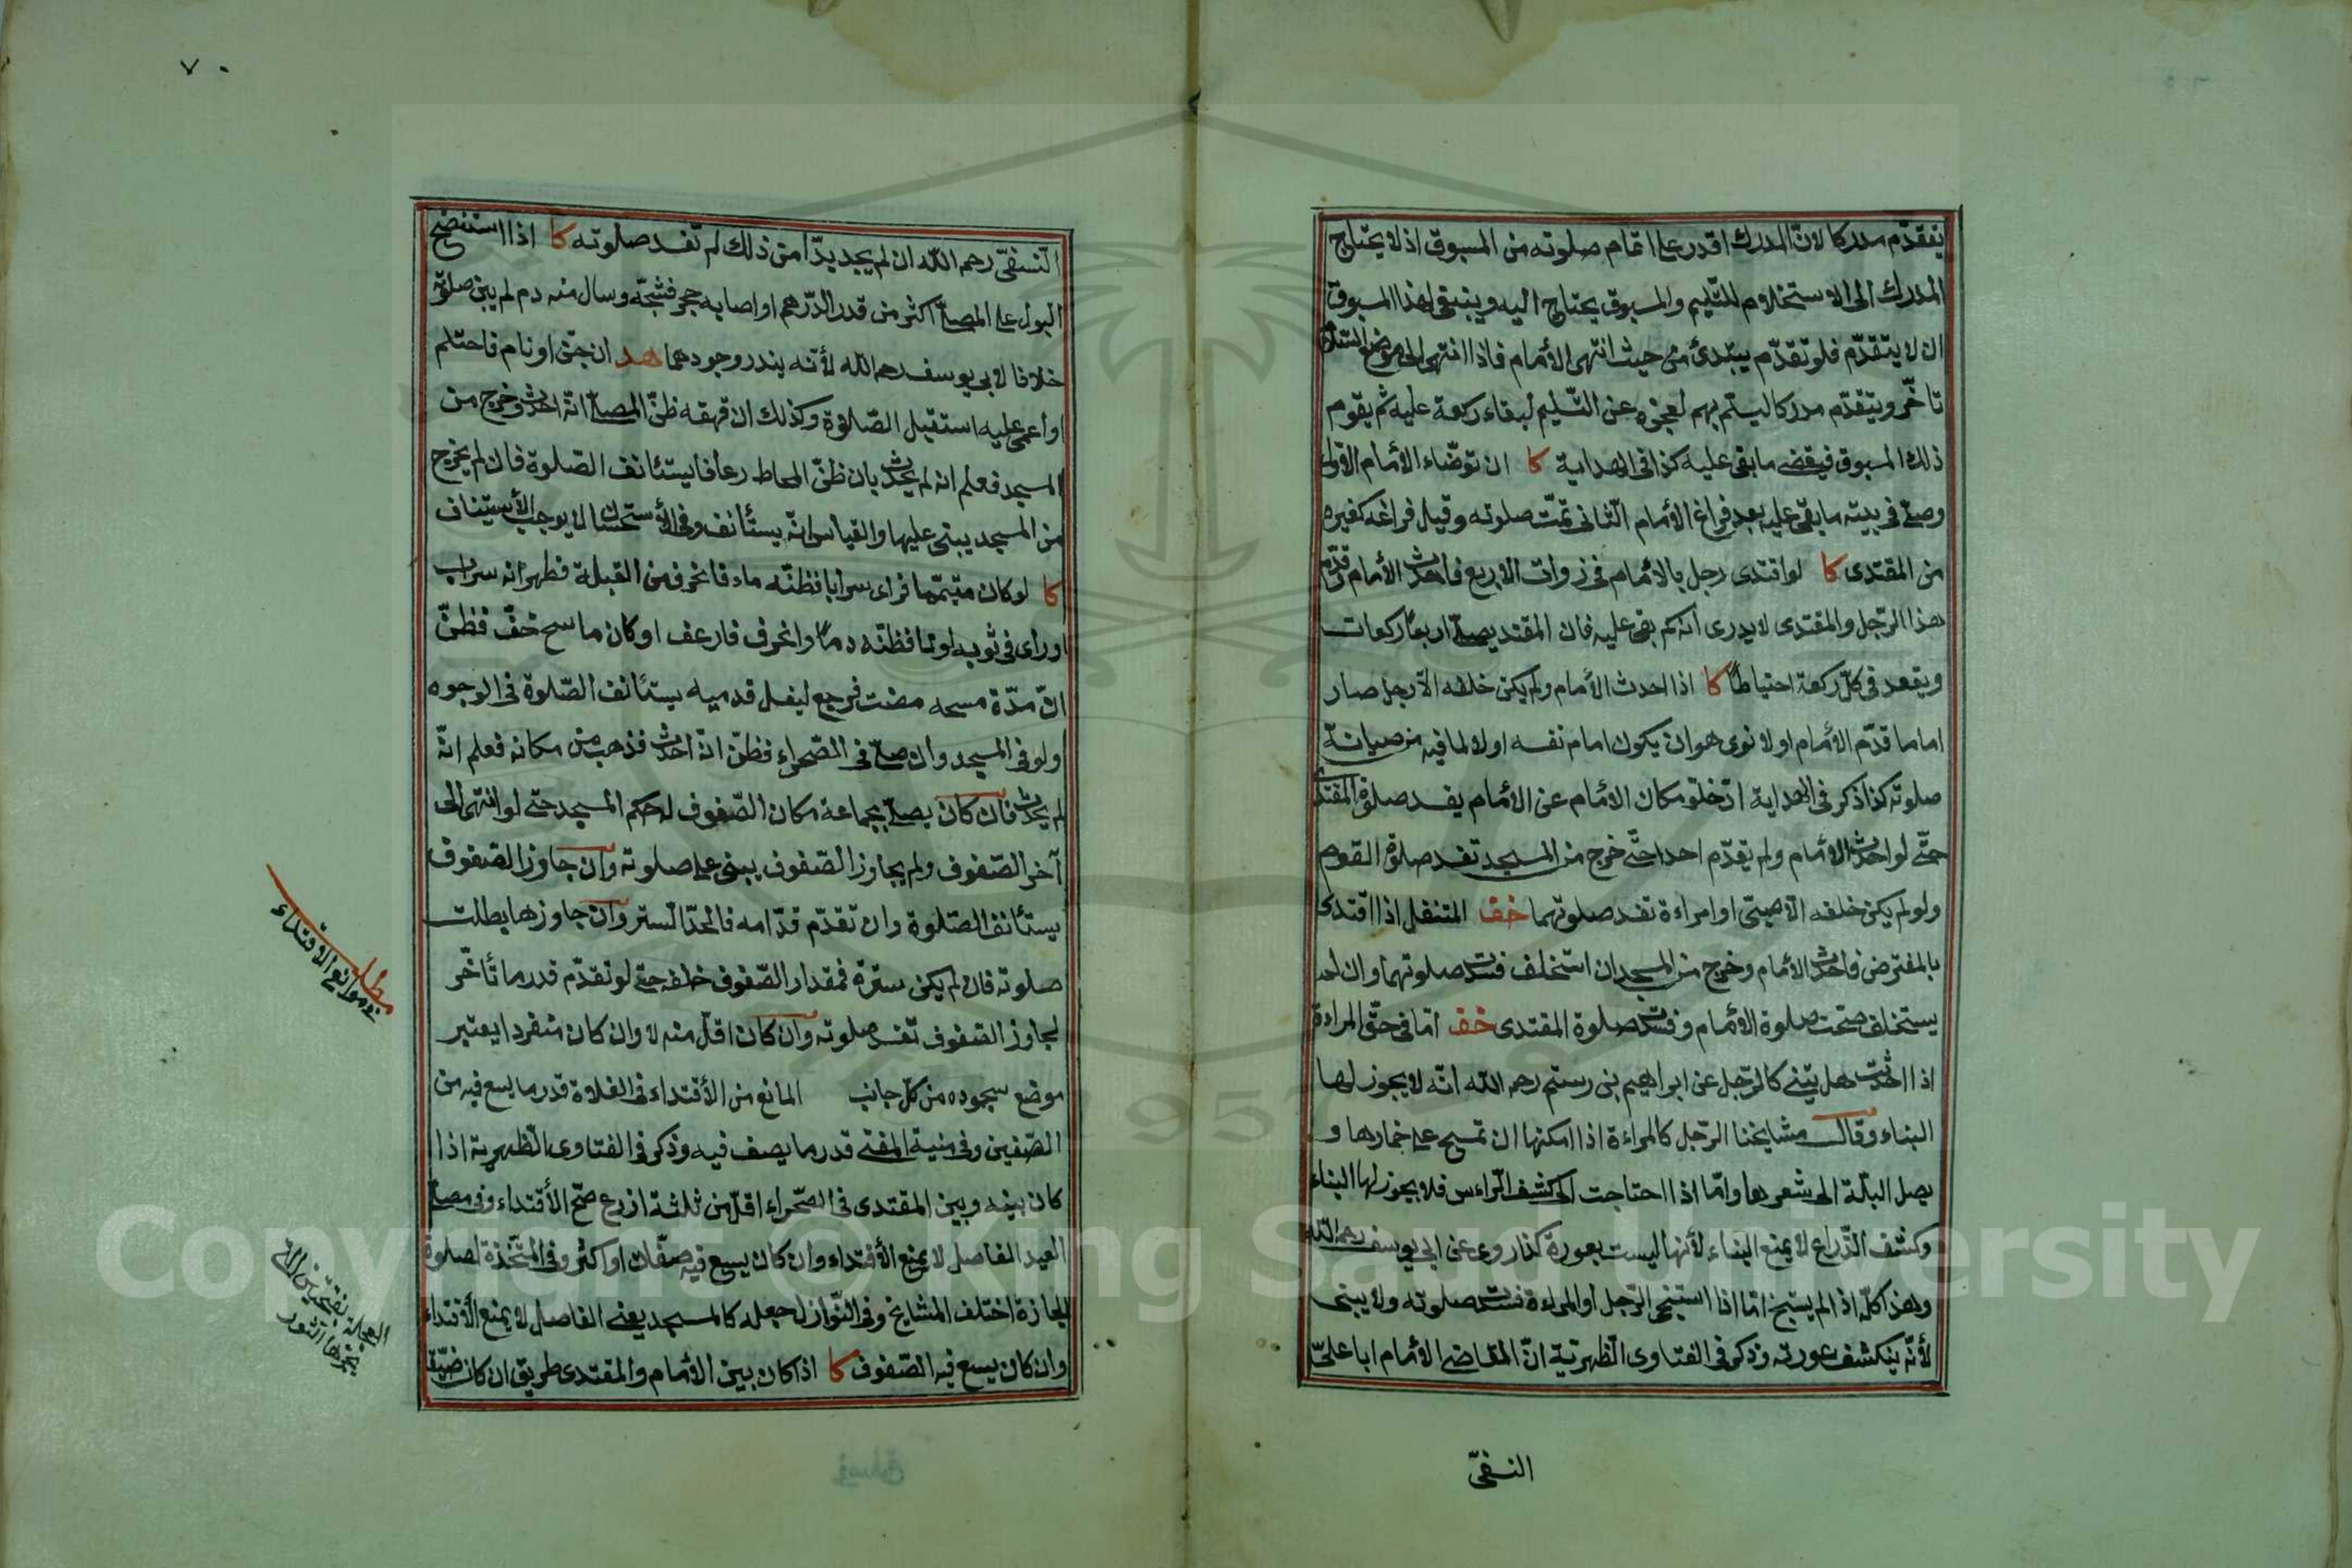 يتقدّم مدركا لانّ المدرك اقدر على اتمام صلوته من المسبوق اذ لا يحتاج
المدرك الى الاستخلاف للتسليم والمسبوق يحتاج اليه وينبغى لهذا المسبوق
ان لا يتقدّم فلو تقدّم يبتدئ من حيث انتهى الأمام فاذا انتهى الى موضع السّلام
تأخّر ويتقدّم مدركا ليسلّم بهم لعجزه عن التّسليم لبقاء ركعة عليه ثم يقوم
ذلك المسبوق فيقضى ما بقى عليه كذا فى الهداية كا ان توضّاء الأمام الاوّل
وصلّى فى بيته ما بقى عليه بعد فراغ الأمام الثّانى تمّت صلوته وقبل فراغه كغيره
من المقتدى كا لو اقتدى رجل بالأمام فى ذوات الاربع فاحدث الأمام وقدّم
هذا الرّجل والمقتدى لا يدرى انه كم بقى عليه فان المقتدى يصلّى اربع ركعات
ويقعد فى كلّ ركعة احتياطاً كا اذا احدث الأمام ولم يكن خلفه الاّ رجل صار
اماما قدّم الأمام او لا نوى هو ان يكون امام نفسه او لا لما فيه من صيانة
صلوته كذا ذكر فى الهداية انّ خلو مكان الامام عن الأمام يفسد صلوة المقتدى
حتّى لو احدث الأمام ولم يقدّم احدا حتّى خرج من المسجد تفسد صلوة القوم
ولو لم يكن خلفه الاّ صبىّ او امراءة تفسد صلوتهما خف المتنفل اذا اقتدى
بالمفترض فاحدث الامام وخرج من المسجد ان استخلف فسدت صلوتهما وان لم
يستخلف صحّت صلوة الأمام وفسدت صلوة المقتدى خف امّا فى حقّ المراءة
اذا احدثت هل تبنى كالرّجل عن ابراهيم بن رستم رحمه الله انّه لا يجوز لها
البناء وقال مشايخنا الرّجل كالمراءة اذا امكنها ان تمسح على خمارها و
يصل البلّة الى شعرها وامّا اذا احتاجت الى كشف الرّاءس فلا يجوز لها البناء
وكشف الذّراع لا يمنع البناء لأنها ليست بعورة كذا روى عن ابى يوسف رحمه الله
وهذا كلّه اذ لم يستنج امّا اذا استنجى الرّجل او المراءة فسدت صلوته ولا يبنى
لأنّه ينكشف عورته وذكر فى الفتاوى الظّهيريّة انّ القاضى الأمام ابا علىّ
النسفىّ
٧٠
النّسفىّ رحمه اللّه ان لم يجد بدّا من ذلك لم تفسد صلوته كا اذا استنضح
البول على المصلّى اكثر من قدر الدّرهم او اصابه حجر فشجّه وسال منه دم لم يبن صلوته
خلافا لابى يوسف رحمه الله لأنّه يندر وجودهما هد ان جنّ او نام فاحتلم
او اغمى عليه استقبل الصّلوة وكذلك ان قهقه ظنّ المصلّى انّه احدث وخرج من
المسجد فعلم انه لم يحدث بان ظنّ المخاط رعافا يستئانف الصّلوة فان لم يخرج
من المسجد يبنى عليها والقياس انّه يستأنف وفى الأستحسان لا يوجب الأستيناف
كا لو كان متيمّما فراى سرابا فظنّه ماء فانحرف من القبلة فظهر انه سراب
او راى فى ثوبه لونا فظنّه دماً وانحرف فارعف او كان ماسح خفّ فظنّ
انّ مدّة مسحه مضت فرجع ليغسل قدميه يستئانف الصّلوة فى الوجوه
ولو فى المسجد وان صلّى فى الصّحراء فظنّ انّه احدث فذهب من مكانه فعلم انّه
لم يحدث فان كان يصلّى بجماعة مكان الصّفوف له حكم المسجد حتى لو انتهى الى
آخر الصّفوف ولم يجاوز الصّفوف يبنى على صلوته وان جاوز الصّفوف
يستأنف الصّلوة وان تقدّم قدّامه فالحدّ السّتر وان جاوزها بطلت
صلوته فان لم يكن سترة فمقدار الصّفوف خلفه حتى لو تقدّم قدر ما تأخّر
لجاوز الصّفوف تفسد صلوته وان كان اقلّ منه لا وان كان منفردا يعتبر
موضع سجوده من كلّ جانب المانع من الأقتداء فى الفلاة قدر ما يسع فيه من
الصّفين وفى منية المفتى قدر ما يصف فيه وذكر فى الفتاوى الظهيرية اذا
كان بينه وبين المقتدى فى الصّحراء اقلّ من ثلثة اذرع صحّ الأقتداء وفى مصلّى
العيد الفاصل لا يمنع الأقتداء وان كان يسع فيه صفّان او اكثر وفى المتّخذة لصلوة
الجنازة اختلف المشايخ وفى النّوازل جعله كالمسجد يعنى الفاصل لا يمنع الأقتداء
وان كان يسع فيه الصّفوف كا اذا كان بين الأمام والمقتدى طريق ان كان ضيّقا
مطلب
فى موانع الاقتداء
العجلة بفتحتين
يجرها الثور
Copyright © King Saud University
1957